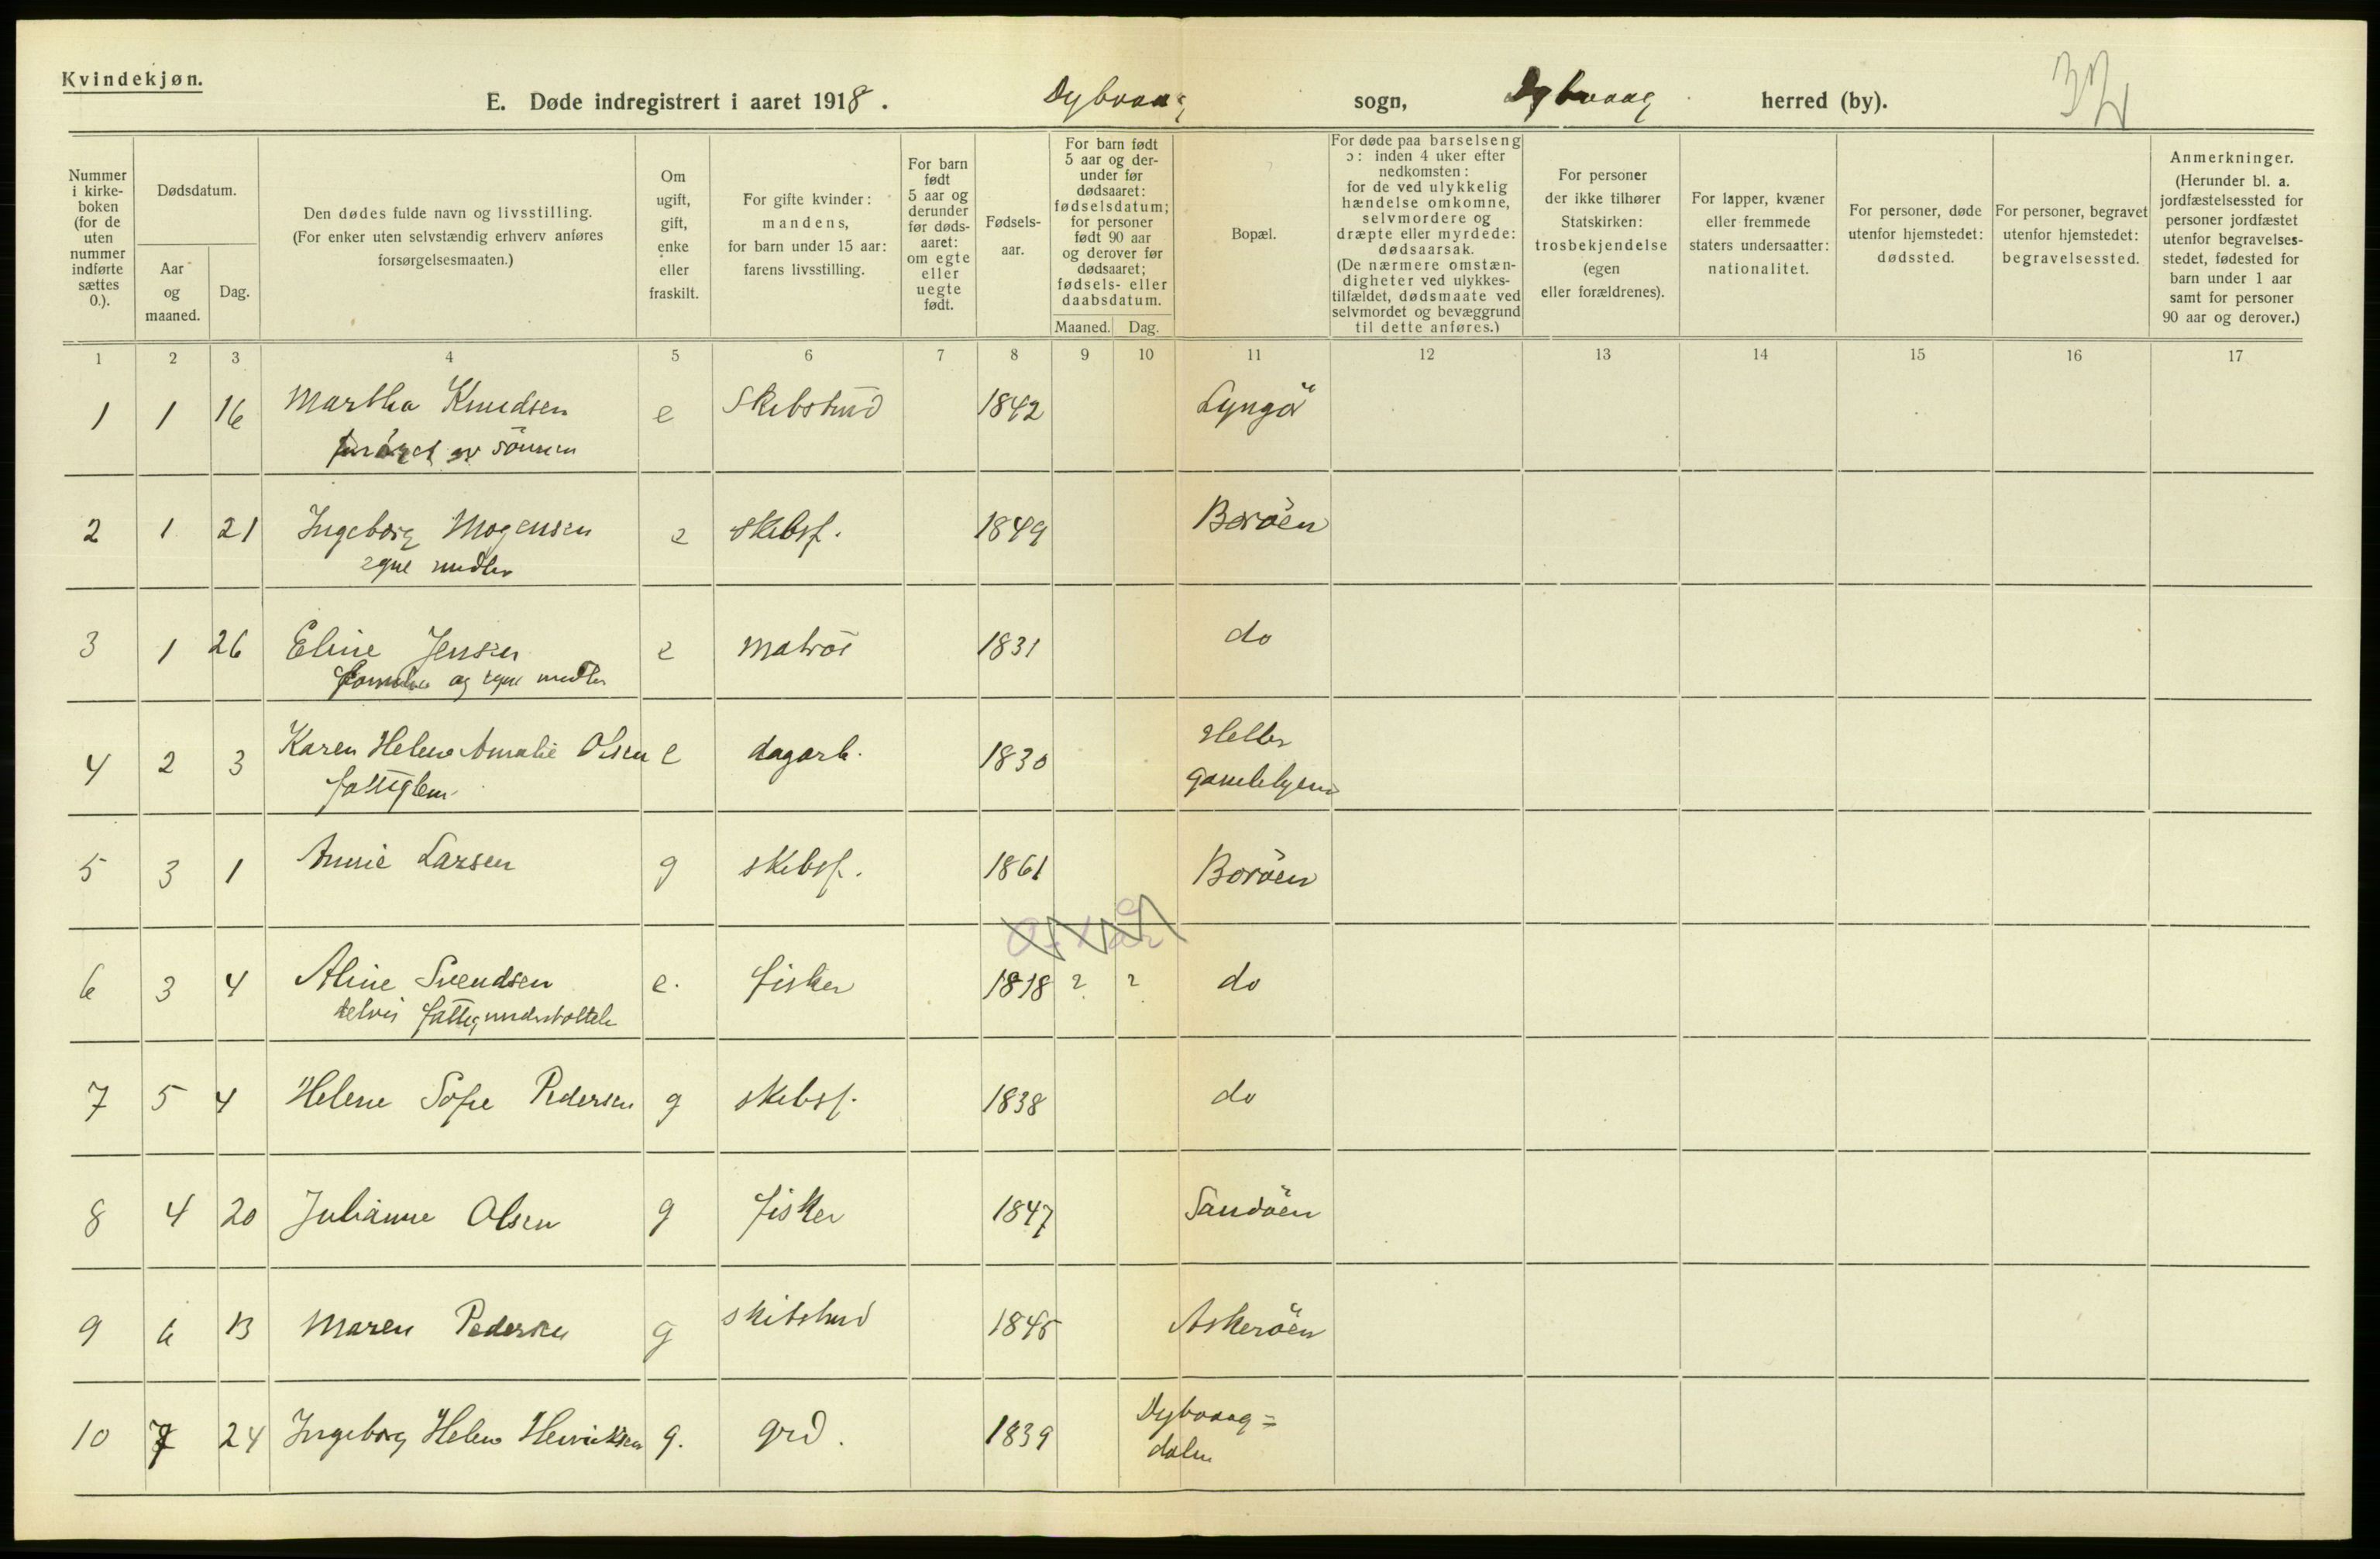 Kvindekjøn.
E. Døde indregistrert i aaret 1918. Dybvaag sogn, Dybvaag herred (by).
Nummer i kirkeboken (for de uten nummer indførte sættes 0.).
Dødsdatum.
Aar og maaned.
Dag.
Den dødes fulde navn og livsstilling.
(For enker uten selvstændig erhverv anføres forsørgelsesmaaten.)
Om ugift, gift, enke eller fraskilt.
For gifte kvinder: mandens, for barn under 15 aar: farens livsstilling.
For barn født 5 aar og derunder før dødsaaret: om egte eller uegte født.
Fødselsaar.
For barn født 5 aar og derunder før dødsaaret: fødselsdatum; for personer født 90 aar og derover før dødsaaret; fødsels- eller daabsdatum.
Maaned. Dag.
Bopæl.
For døde paa barselseng ɔ: inden 4 uker efter nedkomsten: for de ved ulykkelig hændelse omkomne, selvmordere og dræpte eller myrdede: dødsaarsak.
(De nærmere omstændigheter ved ulykkestilfældet, dødsmaate ved selvmordet og bevæggrund til dette anføres.)
For personer der ikke tilhører Statskirken: trosbekjendelse (egen eller forældrenes).
For lapper, kvæner eller fremmede staters undersaatter: nationalitet.
For personer, døde utenfor hjemstedet: dødssted.
For personer, begravet utenfor hjemstedet: begravelsessted.
Anmerkninger.
(Herunder bl. a. jordfæstelsessted for personer jordfæstet utenfor begravelsesstedet, fødested for barn under 1 aar samt for personer 90 aar og derover.)
1 2 3 4 5 6 7 8 9 10 11 12 13 14 15 16 17
1 1 16 Martha Knudsen e Skibstmd 1842 Lyngö
forsörget av sönnen
2 1 21 Ingeborg Mogensen e skibsf. 1849 Boröen
egne midler
3 1 26 Eline Jensen e matros 1831 do
familie og egne midler
4 2 3 Karen Helene Amalie Olsen e dagarb. 1830 Helle
fattiglem. gamlehjem
5 3 1 Annie Larsen g skibsf. 1861 Boröen
6 3 4 Aline Svendsen e. fisker 1818 ? ? do
delvis fattigunderstöttelse
7 5 4 Helene Sofie Pedersen g skibsf. 1838 do
8 4 20 Julianne Olsen g fisker 1847 Sandöen
9 6 13 Maren Pedersen g skibstmd 1845 Askeröen
10 7 24 Ingeborg Helene Henriksen g. grd. 1839 Dybvaag=
dalen